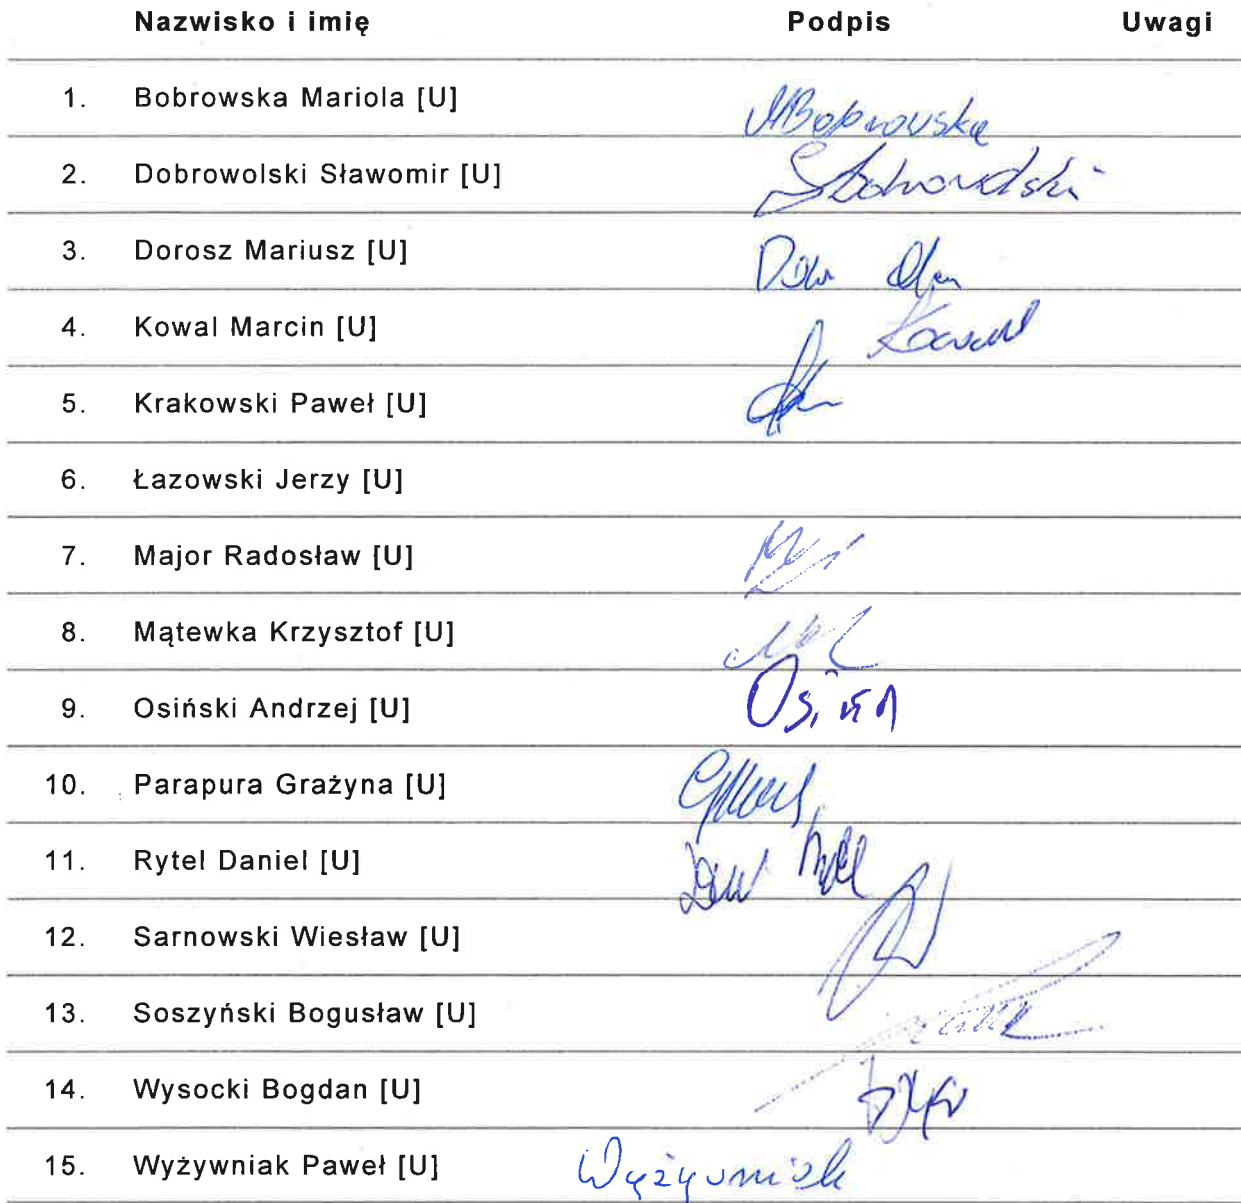 Nazwisko i imię Podpis Uwagi
1. Bobrowska Mariola [U] MBobrowska
2. Dobrowolski Sławomir [U] SDobrowolski
3. Dorosz Mariusz [U]
4. Kowal Marcin [U] Kowal
5. Krakowski Paweł [U]
6. Łazowski Jerzy [U]
7. Major Radosław [U]
8. Mątewka Krzysztof [U]
9. Osiński Andrzej [U]
10. Parapura Grażyna [U]
11. Rytel Daniel [U]
12. Sarnowski Wiesław [U]
13. Soszyński Bogusław [U]
14. Wysocki Bogdan [U]
15. Wyżywniak Paweł [U] Wyżywniak